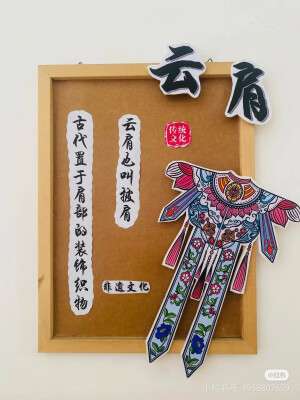 云肩
传统
文化
云肩也叫披肩
古代置于肩部的装饰织物
非遗文化
小红书
小红书号: 4953807690